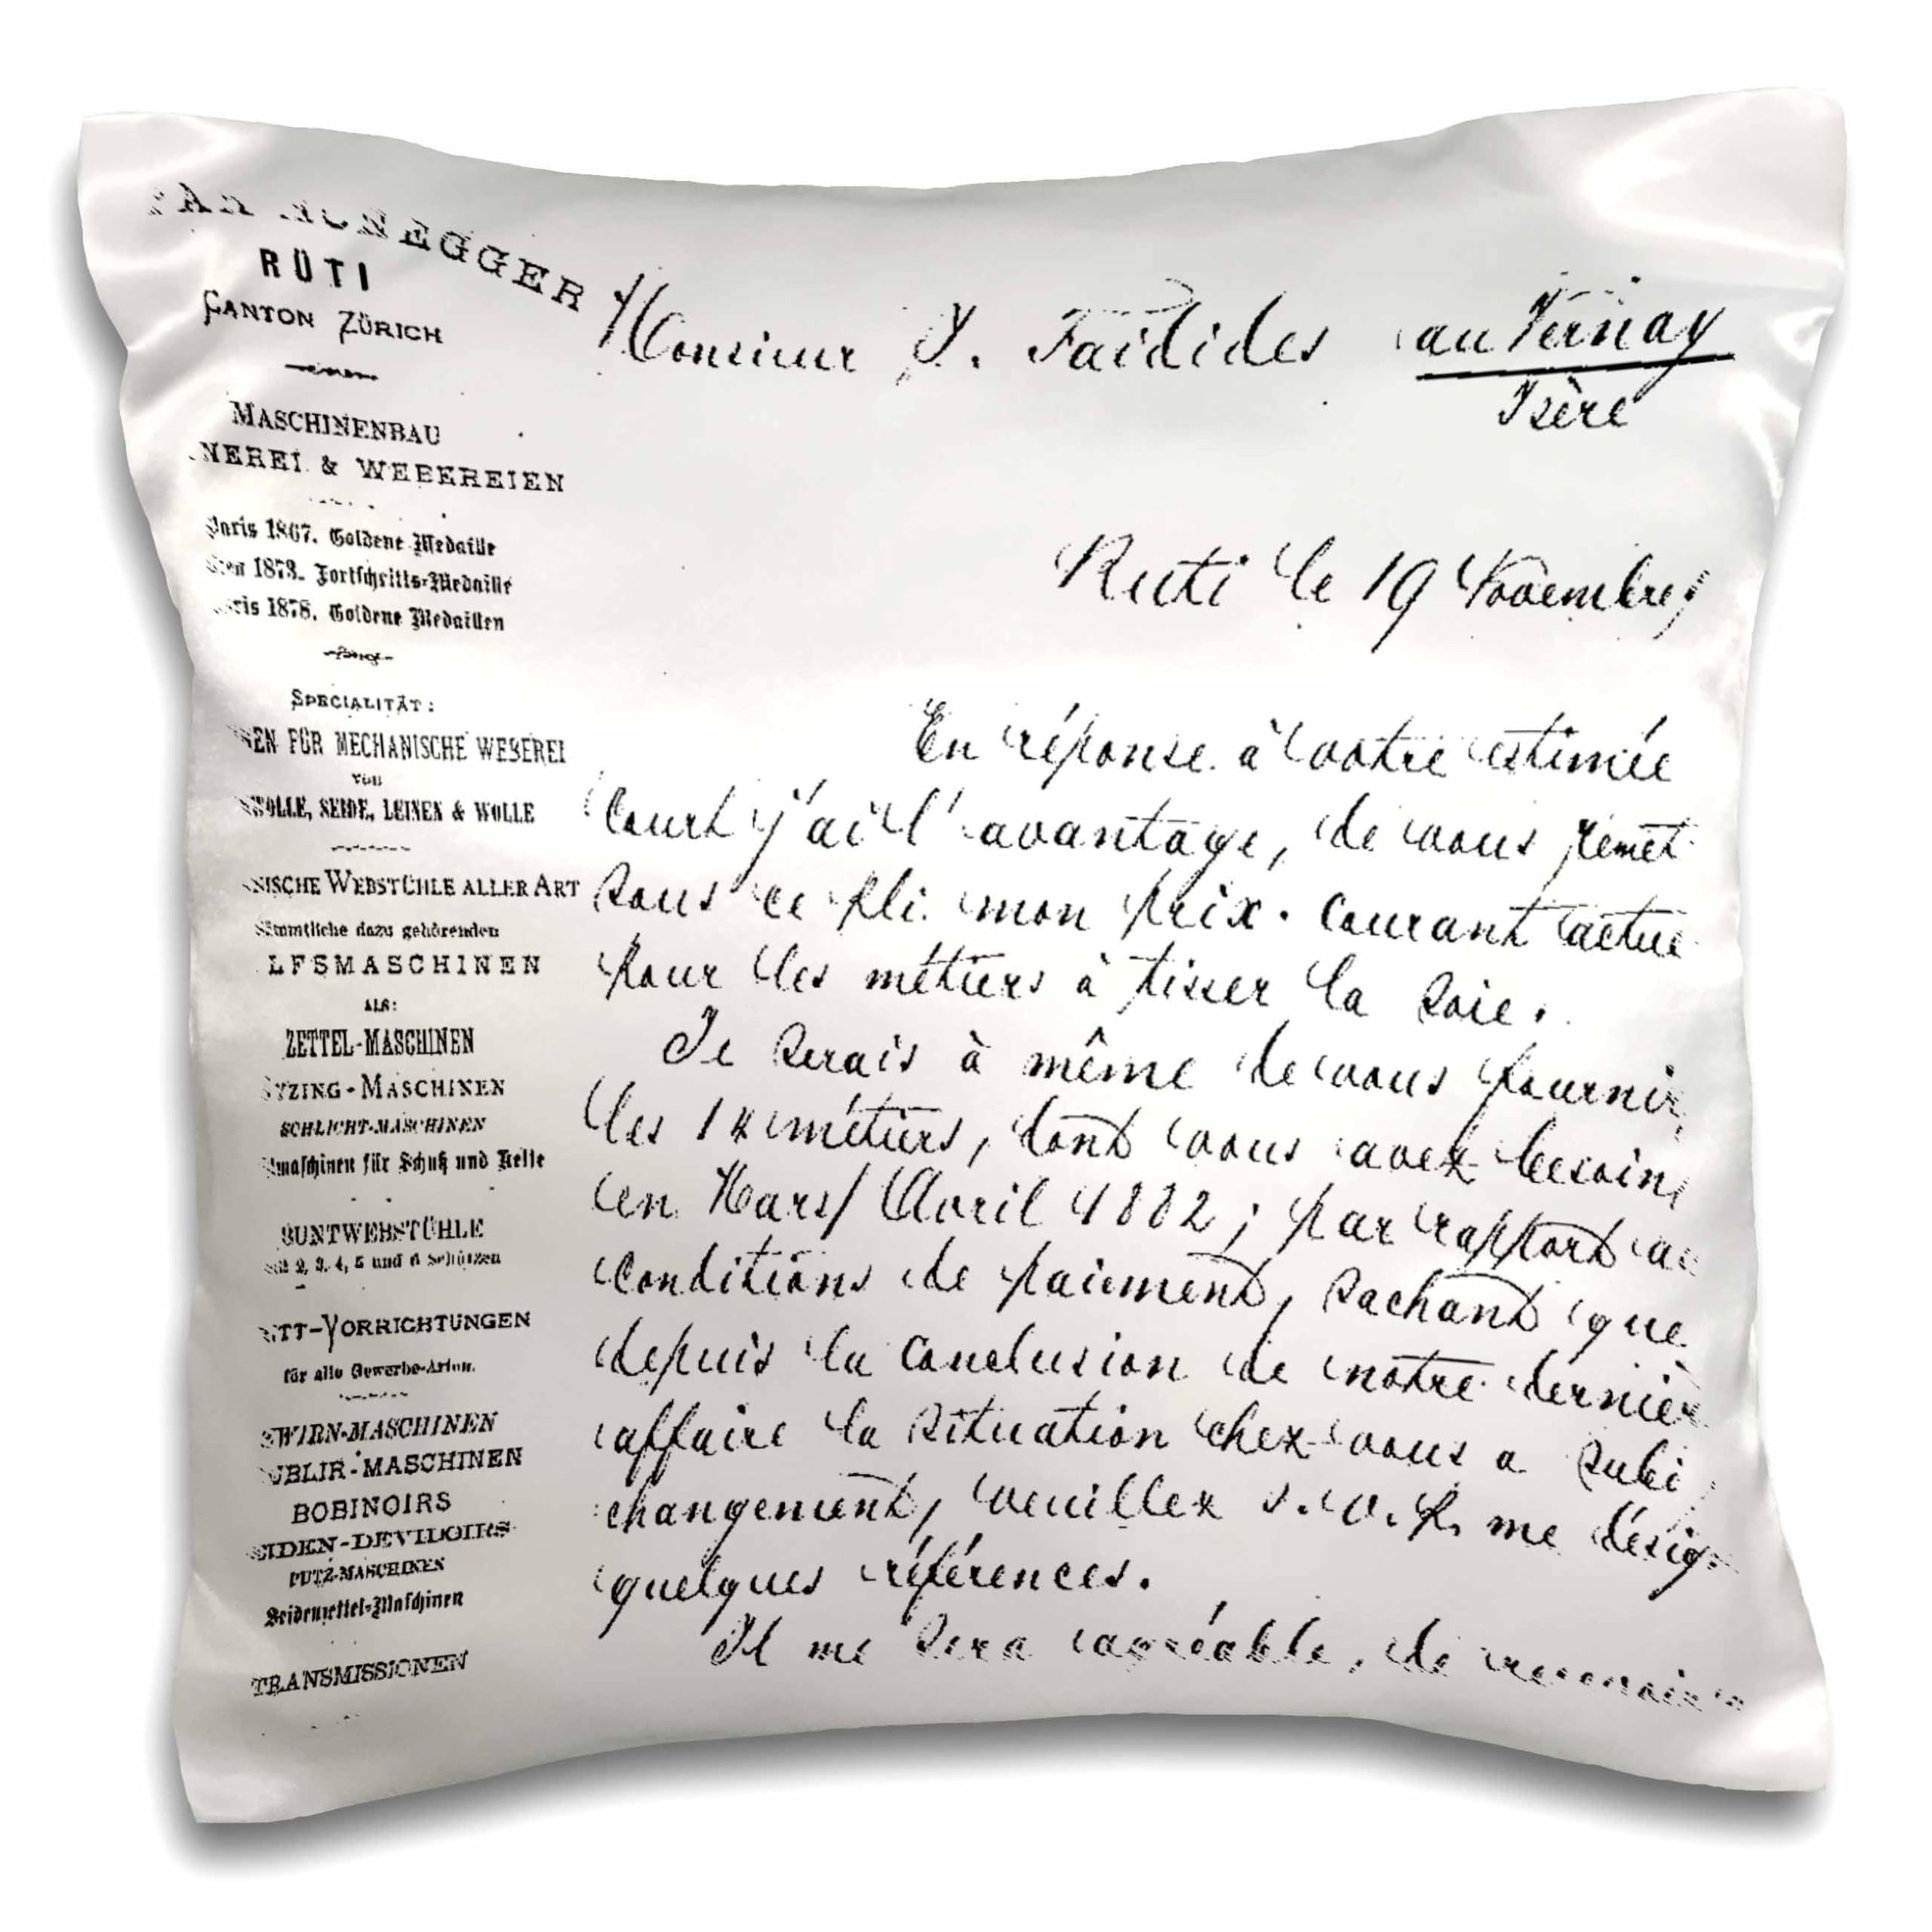 HONEGGER
RÜTI
CANTON ZÜRICH
MASCHINENBAU
NEREI & WEBEREIEN
Paris 1867. Goldene Medaille
1873. Fortschritts-Medaille
ris 1878. Goldene Medaillen
SPECIALITÄT:
EN FÜR MECHANISCHE WEBEREI
von
WOLLE, SEIDE, LEINEN & WOLLE
NISCHE WEBSTÜHLE ALLER ART
Sämmtliche dazu gehörenden
LFSMASCHINEN
ALS:
ZETTEL-MASCHINEN
ZING-MASCHINEN
SCHLICHT-MASCHINEN
maschinen für Schuß und Kette
BUNTWEBSTÜHLE
mit 2, 3, 4, 5 und 6 Schützen
TT-VORRICHTUNGEN
für alle Gewerbe-Arten.
ZWIRN-MASCHINEN
UBLIR-MASCHINEN
BOBINOIRS
EIDEN-DEVIDOIRS
PUTZ-MASCHINEN
Seidenzettel-Maschinen
TRANSMISSIONEN
Monsieur J. Faidides au Vernay
Isère
Ruti le 19 Novembre,
En réponse à votre estimée
court j'ai l'avantage, de vous remet
sous ce pli mon prix-courant actue
pour les métiers à tisser la soie.
Je serais à même de vous fournir,
les métiers, dont vous avez besoin,
en Mars/Avril 1882; par rapport au
conditions de paiement, sachant que
depuis la conclusion de notre dernièr
affaire la situation chez vous a subi
changement, veuillez s.v.p. me désig-
quelques références.
Il me sera agréable, de recevoir